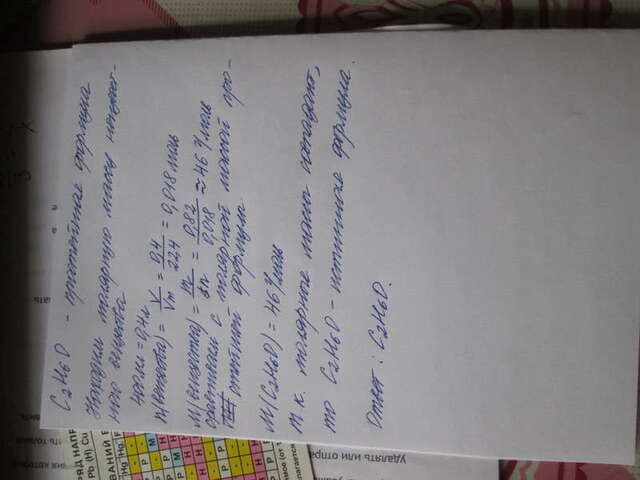 C2H6O - простейшая формула
Находим молярную массу неизвест-
ного вещества
400мл = 0,4л
n(вещества) = V/Vm = 0,4/22,4 = 0,018 моль
M(вещества) = m/n = 0,82/0,018 ≈ 46 г/моль
сравниваем с молярной массой про-
стейшей формулы
M(C2H6O) = 46 г/моль
т.к. молярные массы совпадают,
то C2H6O - истинная формула.
Ответ: C2H6O.
удалять или отпра
РЯД НАПР
Pb (H) Cu